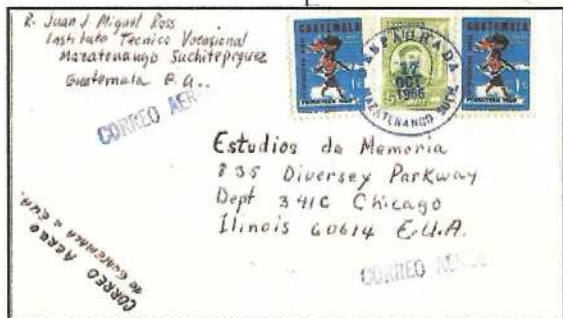 R. Juan J. Miguel Ross
Instituto Tecnico Vocasional
Mazatenango Suchitepequez
Guatemala C.A..
CORREO AER
GUATEMALA
GUATEMALA
ESPAÑRADA
17
OCT
1966
MAZATENANGO SUCH.
Estudios de Memoria
835 Diversey Parkway
Dept 341C Chicago
Ilinois 60614 E.U.A.
CORREO AEREO
de GUATEMALA a E.U.A.
CORREO